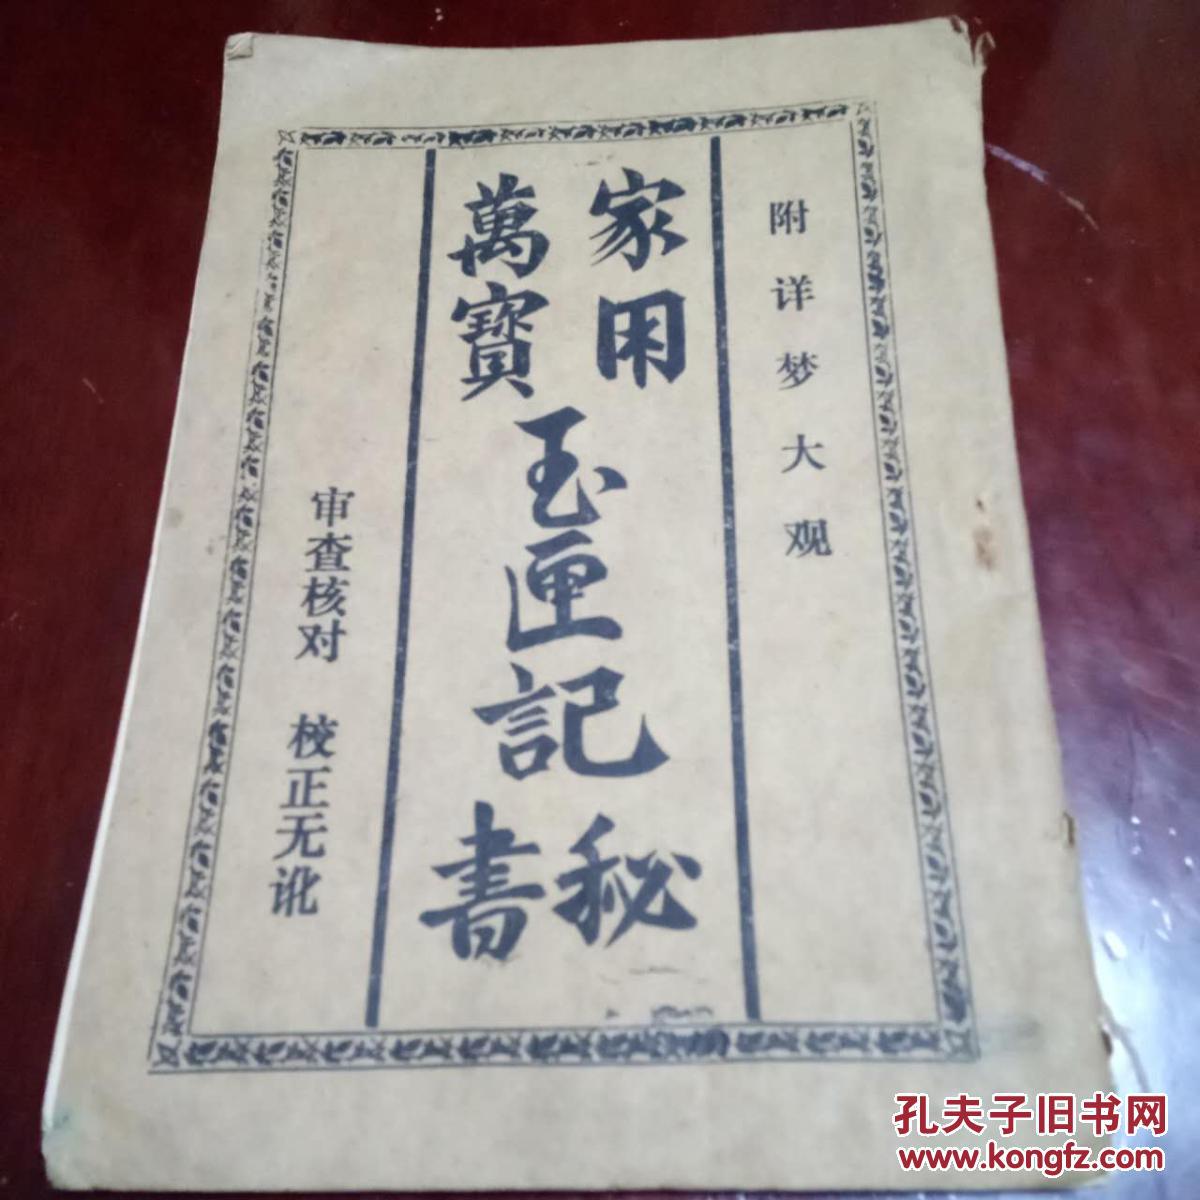 附详梦大观
家用
萬寳
玉匣記
秘
書
审查核对 校正无讹
孔夫子旧书网
www.kongfz.com